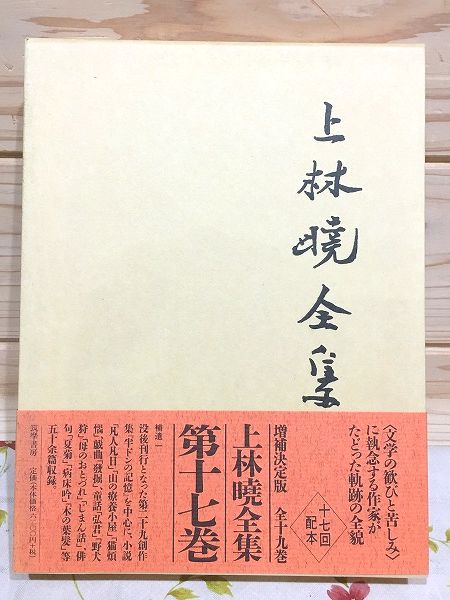 上林暁全集
〈文学の歓びと苦しみ〉
に執念する作家が
たどった軌跡の全貌
十七回
配本
増補決定版 全十九巻
上林暁全集
第十七巻
補遺一
没後刊行となった第二十九創作
集『半ドンの記憶』を中心に、小説
「凡人凡日」「山の療養小屋」「猫煩
悩」戯曲「發掘」童話「弘君」「野犬
狩」「母のおとづれ」「じまん話」、俳
句「夏菊」「病床吟」「木の葉髪」等
五十余篇収録。
筑摩書房